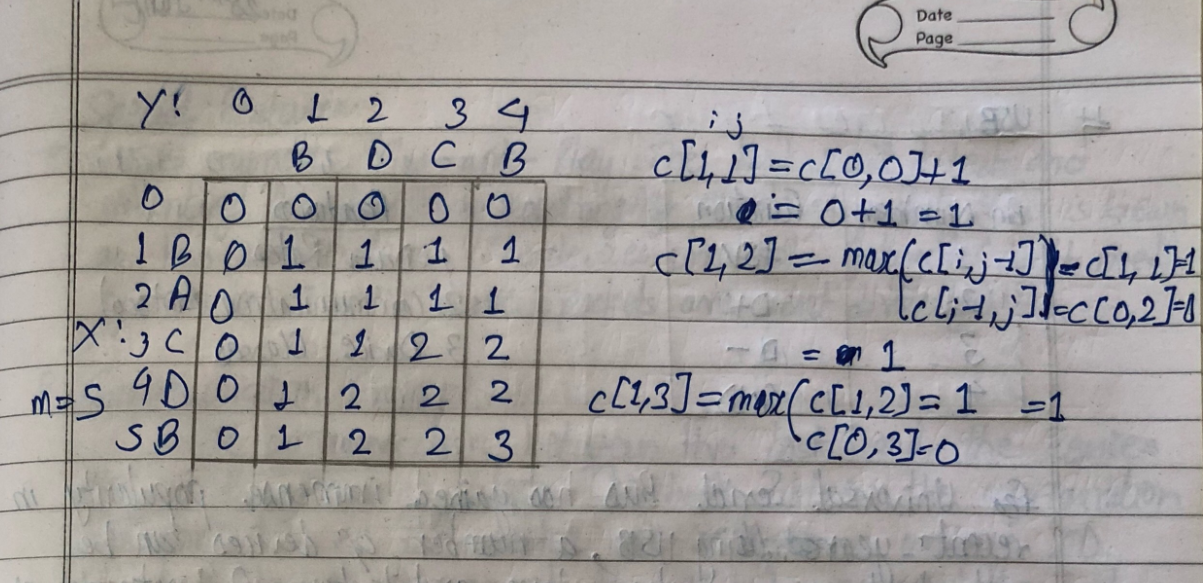 Date
Page
Y: 0 1 2 3 4
B D C B
0 0 0 0 0 0
1 B 0 1 1 1 1
2 A 0 1 1 1 1
X: 3 C 0 1 1 2 2
m=5 4 D 0 1 2 2 2
5 B 0 1 2 2 3
i j
c[1,1] = c[0,0]+1
= 0+1 = 1
c[1,2] = max(c[i,j-1] = c[1,1]=1
c[i-1,j]) = c[0,2]=0
= 1
c[1,3] = max(c[1,2] = 1 = 1
c[0,3]=0